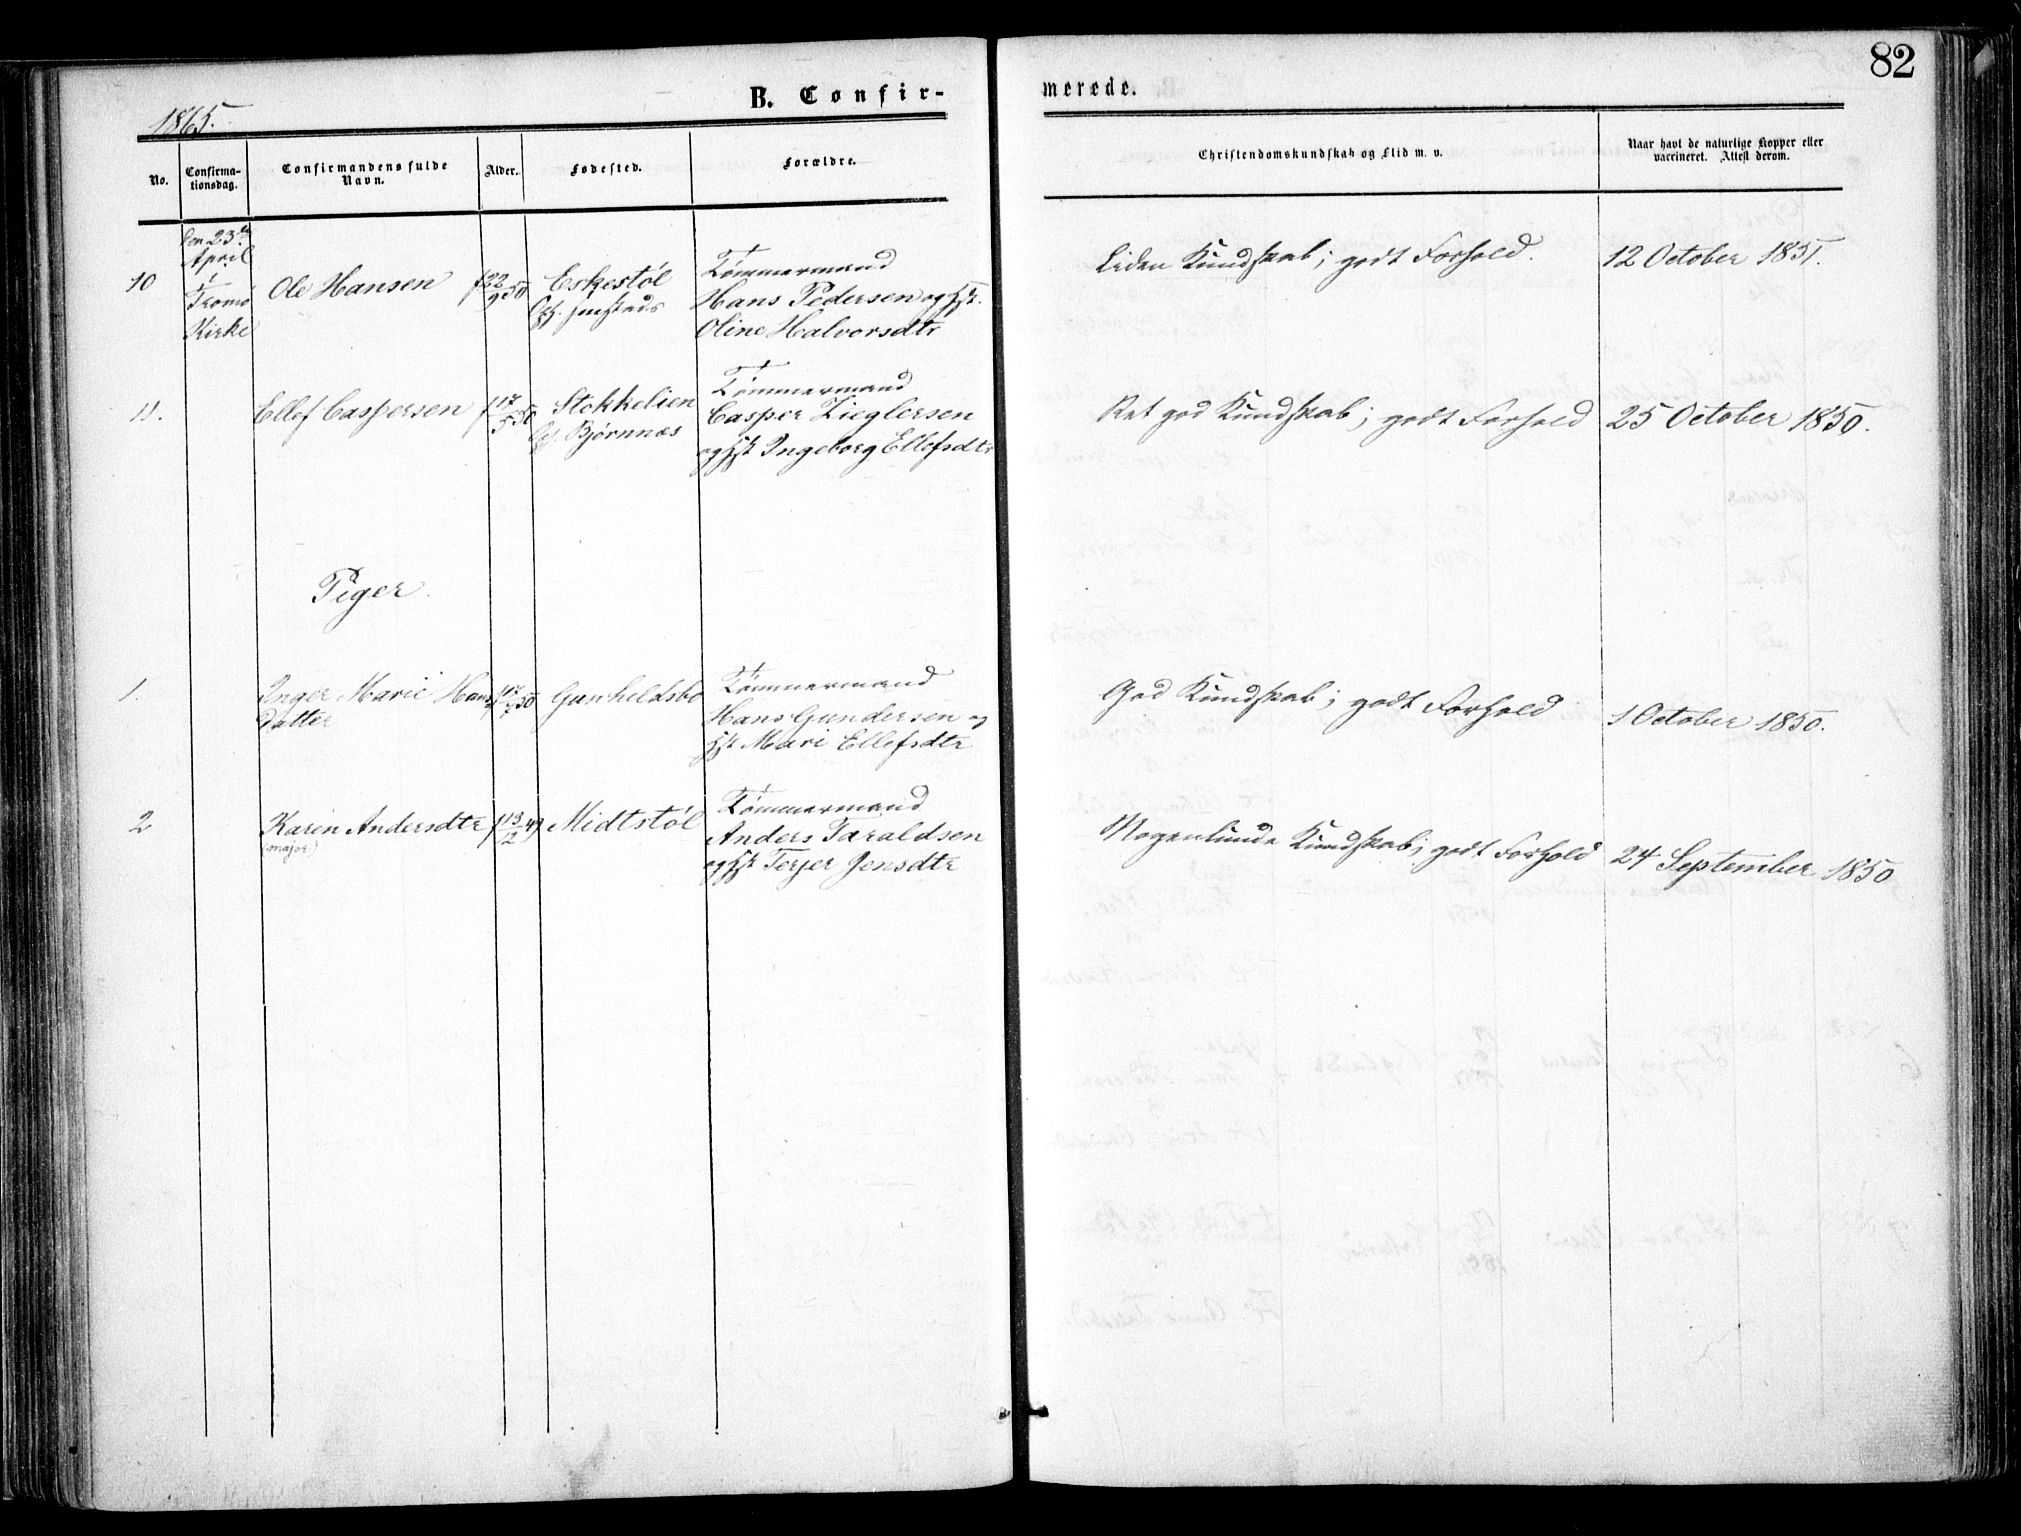 82
B. Confir-
merede.
1865.
No.
Confirma-
tionsdag.
Confirmandens fulde
Navn.
Alder.
Fødested.
Forældre.
Christendomskundskab og Flid m. v.
Naar havt de naturlige Kopper eller
vaccineret. Attest derom.
den 23de
April
i
Tromø
Kirke
10
Ole Hansen
f 22/9 50
Eskestøl
Tømmermand
Hans Pedersen og Hst.
Oline Halvorsdtr
Liden Kundskab; godt Forhold.
12 October 1851.
11.
Ellef Caspersen
f 17/5 50
Stokkelien
Bjørnnæs
Tømmermand
Casper Zieglersen
og Hst Ingeborg Ellefsdtr
Ret god Kundskab; godt Forhold
25 October 1850.
Piger.
1.
Inger Marie Hans
datter
f 17/7 50
Gunheldsbo
Tømmermand
Hans Gundersen og
Hst Mari Ellefsdtr
God Kundskab; godt Forhold
1 October 1850.
2
Karen Andersdtr
(major)
f 13/12 49
Midtstøl
Tømmermand
Anders Taraldsen
og Hst Terjer Jensdtr
Nogenlunde Kundskab; godt Forhold
24 September 1850